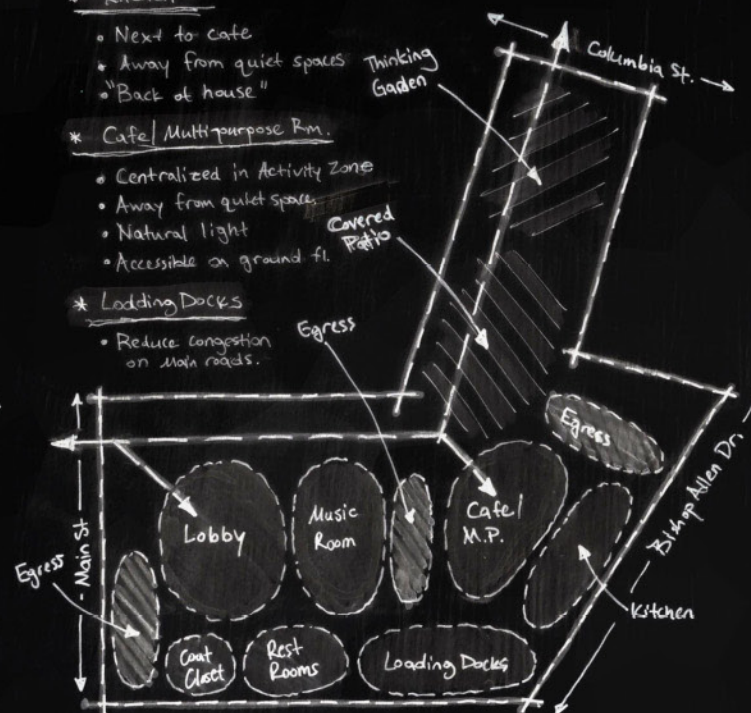 • Next to cafe
• Away from quiet spaces
• "Back of house"
* Cafe/ Multipurpose Rm.
• Centralized in Activity Zone
• Away from quiet space
• Natural light
• Accessible on ground fl.
* Lodding Docks
• Reduce congestion
on Main roads.
Thinking
Gaden
Columbia St.
Covered
Patio
Egress
Egress
Lobby
Music
Room
Cafe/
M.P.
Bishop Allen Dr.
Main St
Egress
Kitchen
Coat
Closet
Rest
Rooms
Loading Docks